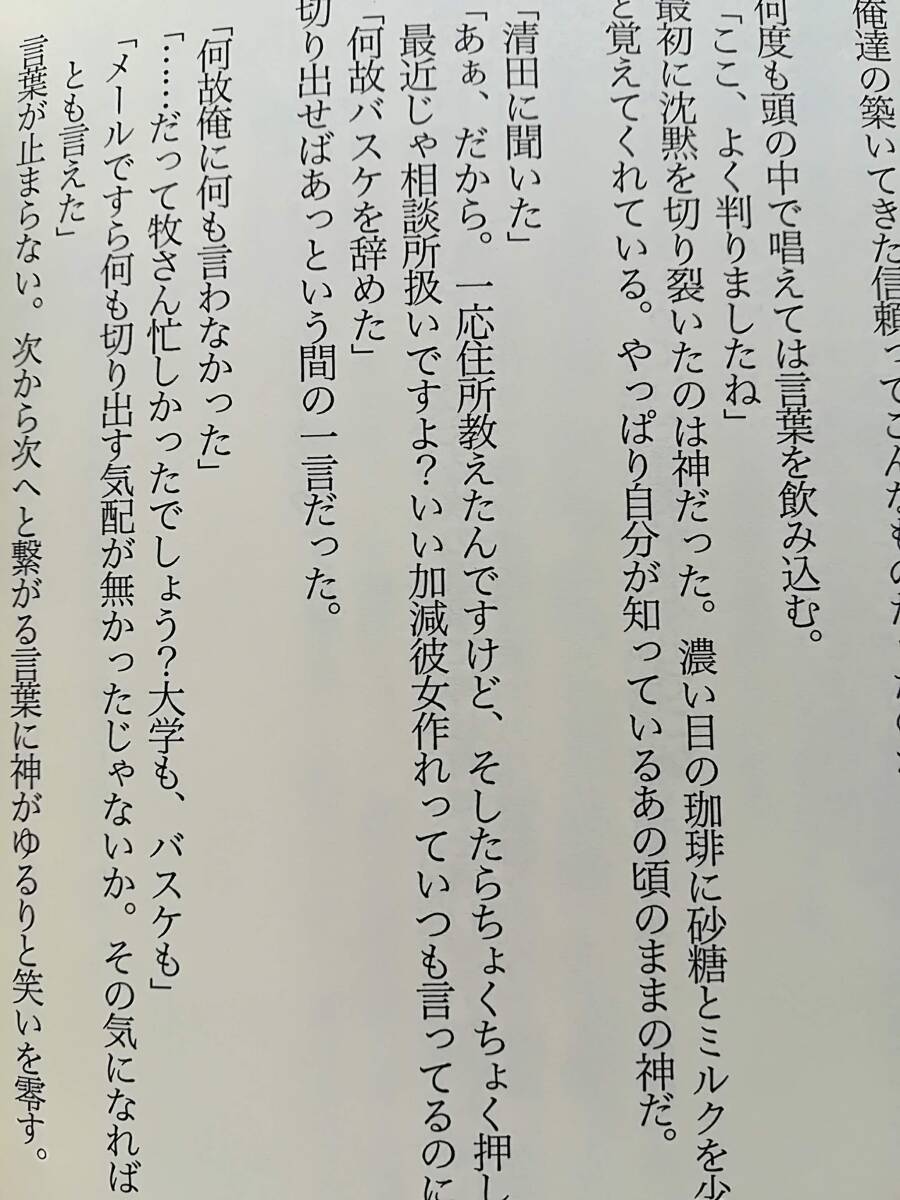 俺達の築いてきた信頼ってこんなものだったのか
何度も頭の中で唱えては言葉を飲み込む。
「ここ、よく判りましたね」
最初に沈黙を切り裂いたのは神だった。濃い目の珈琲に砂糖とミルクを少
と覚えてくれている。やっぱり自分が知っているあの頃のままの神だ。
「清田に聞いた」
「あぁ、だから。一応住所教えたんですけど、そしたらちょくちょく押し
最近じゃ相談所扱いですよ?いい加減彼女作れっていつも言ってるのに
「何故バスケを辞めた」
切り出せばあっという間の一言だった。
「何故俺に何も言わなかった」
「……だって牧さん忙しかったでしょう?大学も、バスケも」
「メールですら何も切り出す気配が無かったじゃないか。その気になれば
とも言えた」
言葉が止まらない。次から次へと繋がる言葉に神がゆるりと笑いを零す。